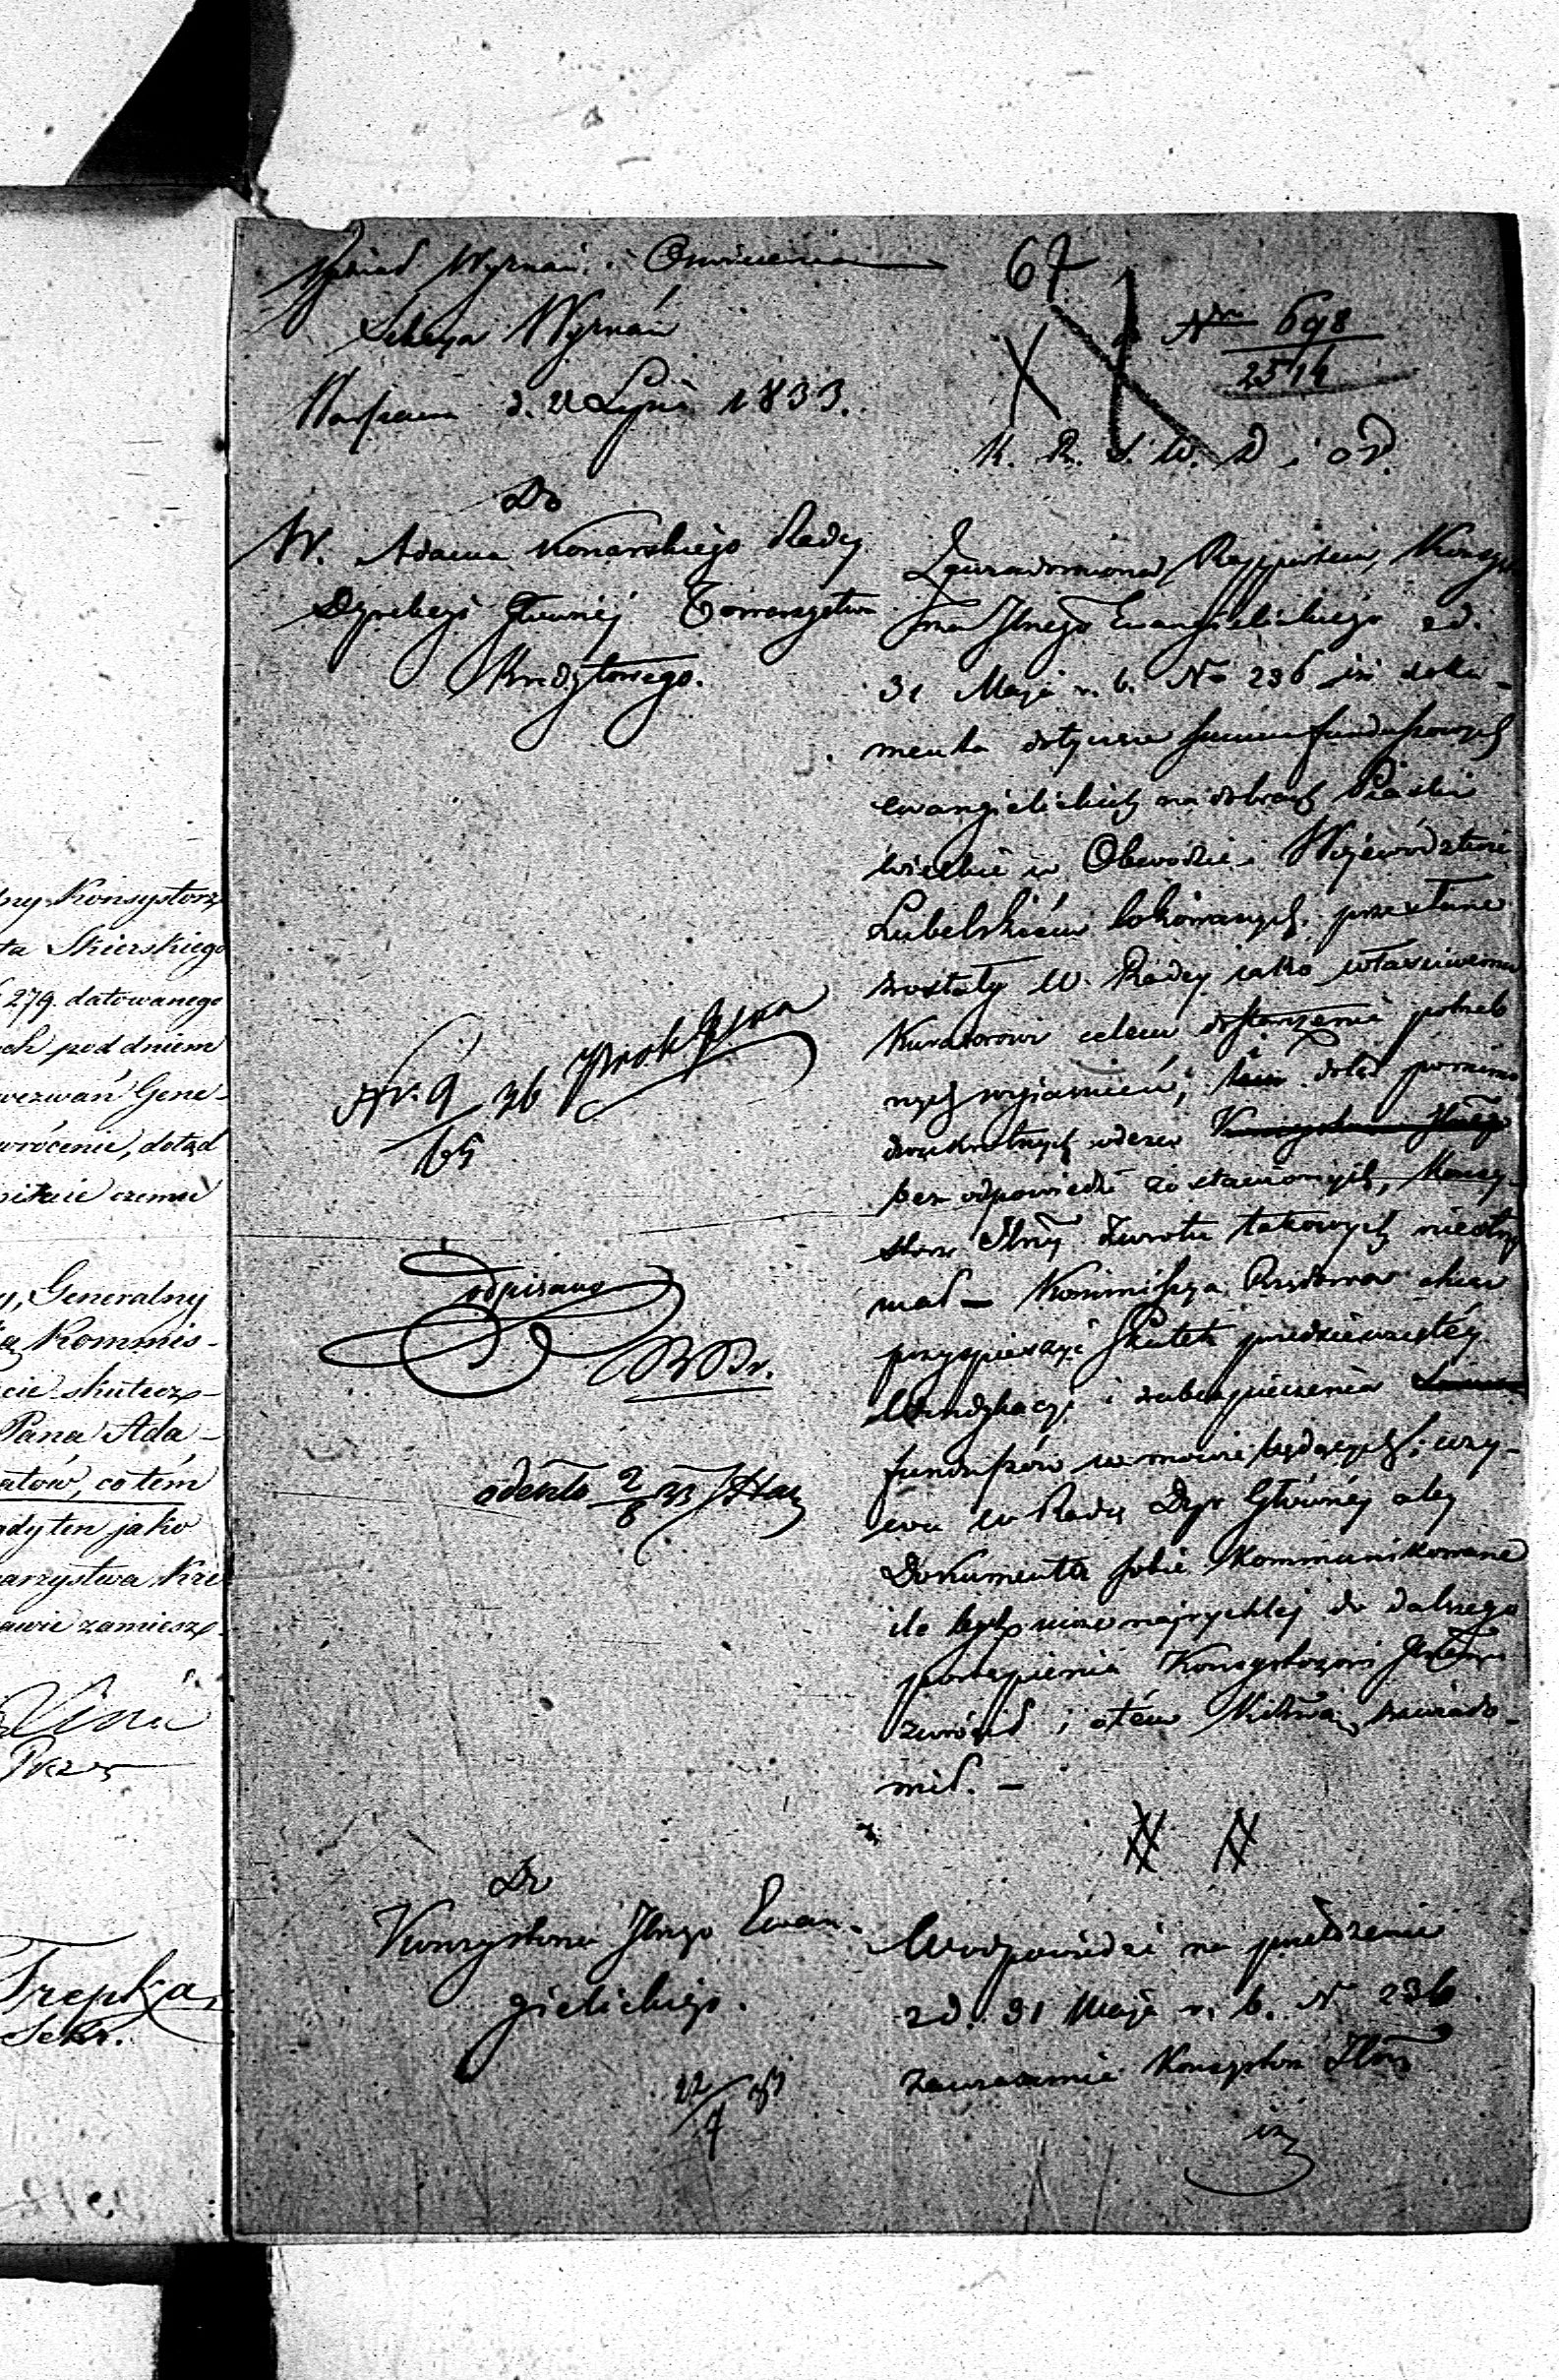 ny Konsystorz
ta Skierskiego
279. datowanego
ch pod dniem
wezwań Gene-
wrócenie, dotąd
y, Generalny
Kommis-
cie skutecz-
Pana Ada-
atów, co tém
gdy ten jako
arzystwa Kre
awie zamiesz-
Prezes
Trepka,
Sekr.
Wydział Wyznań i Oświecenia
Sekcya Wyznań
Warszawa d. Lipca 1833.
67
Nro 698
2514
K. R. S. W. D i O P.
Do
W. Adama Konarskiego Radcy
Dyrekcyi Głównéj Towarzystwa
Kredytowego.
Zawiadomiona Rapportem Konsys
Jlnego Ewangielickiego z d.
31 Maja r. b. No 236 iż doku-
menta dotyczące summ funduszowych
ewangielickich na dobrach Piaski
wielkie w Obwodzie i Województwie
Lubelskiém lokowanych, przesłane
zostały W. Radcy jako właściwemu
Kuratorowi celem dostarczenia potrzeb
nych wyjaśnień, dotąd pomimo
dwukrotnych odezw
bez odpowiedzi zostawionych, Konsy-
storz Jlny zwrotu takowych nieotrzy
mał – Kommissya Rządowa chcąc
przyspieszyć skutek przedsięwziętéj
windykacyi i zabezpieczenia
funduszów w mowie będących, wzy-
wa W Radcę Dyr Głównéj aby
Dokumenta sobie kommunikowane
ile być może najrychlej do dalszego
postąpienia Konsystorzowi Jlnemu
zwrócił i o tém zawiado-
mił. –
Nr. 9 36
65
Podpisano
odeszło 2/8 33
Do
Konsystorza Jlnego Ewan-
gielickiego.
W odpowiedzi na przełożenie
z d. 31 Maja r. b. No 236
zawiadamia Konsystorz Jlny
iż
22/7 33